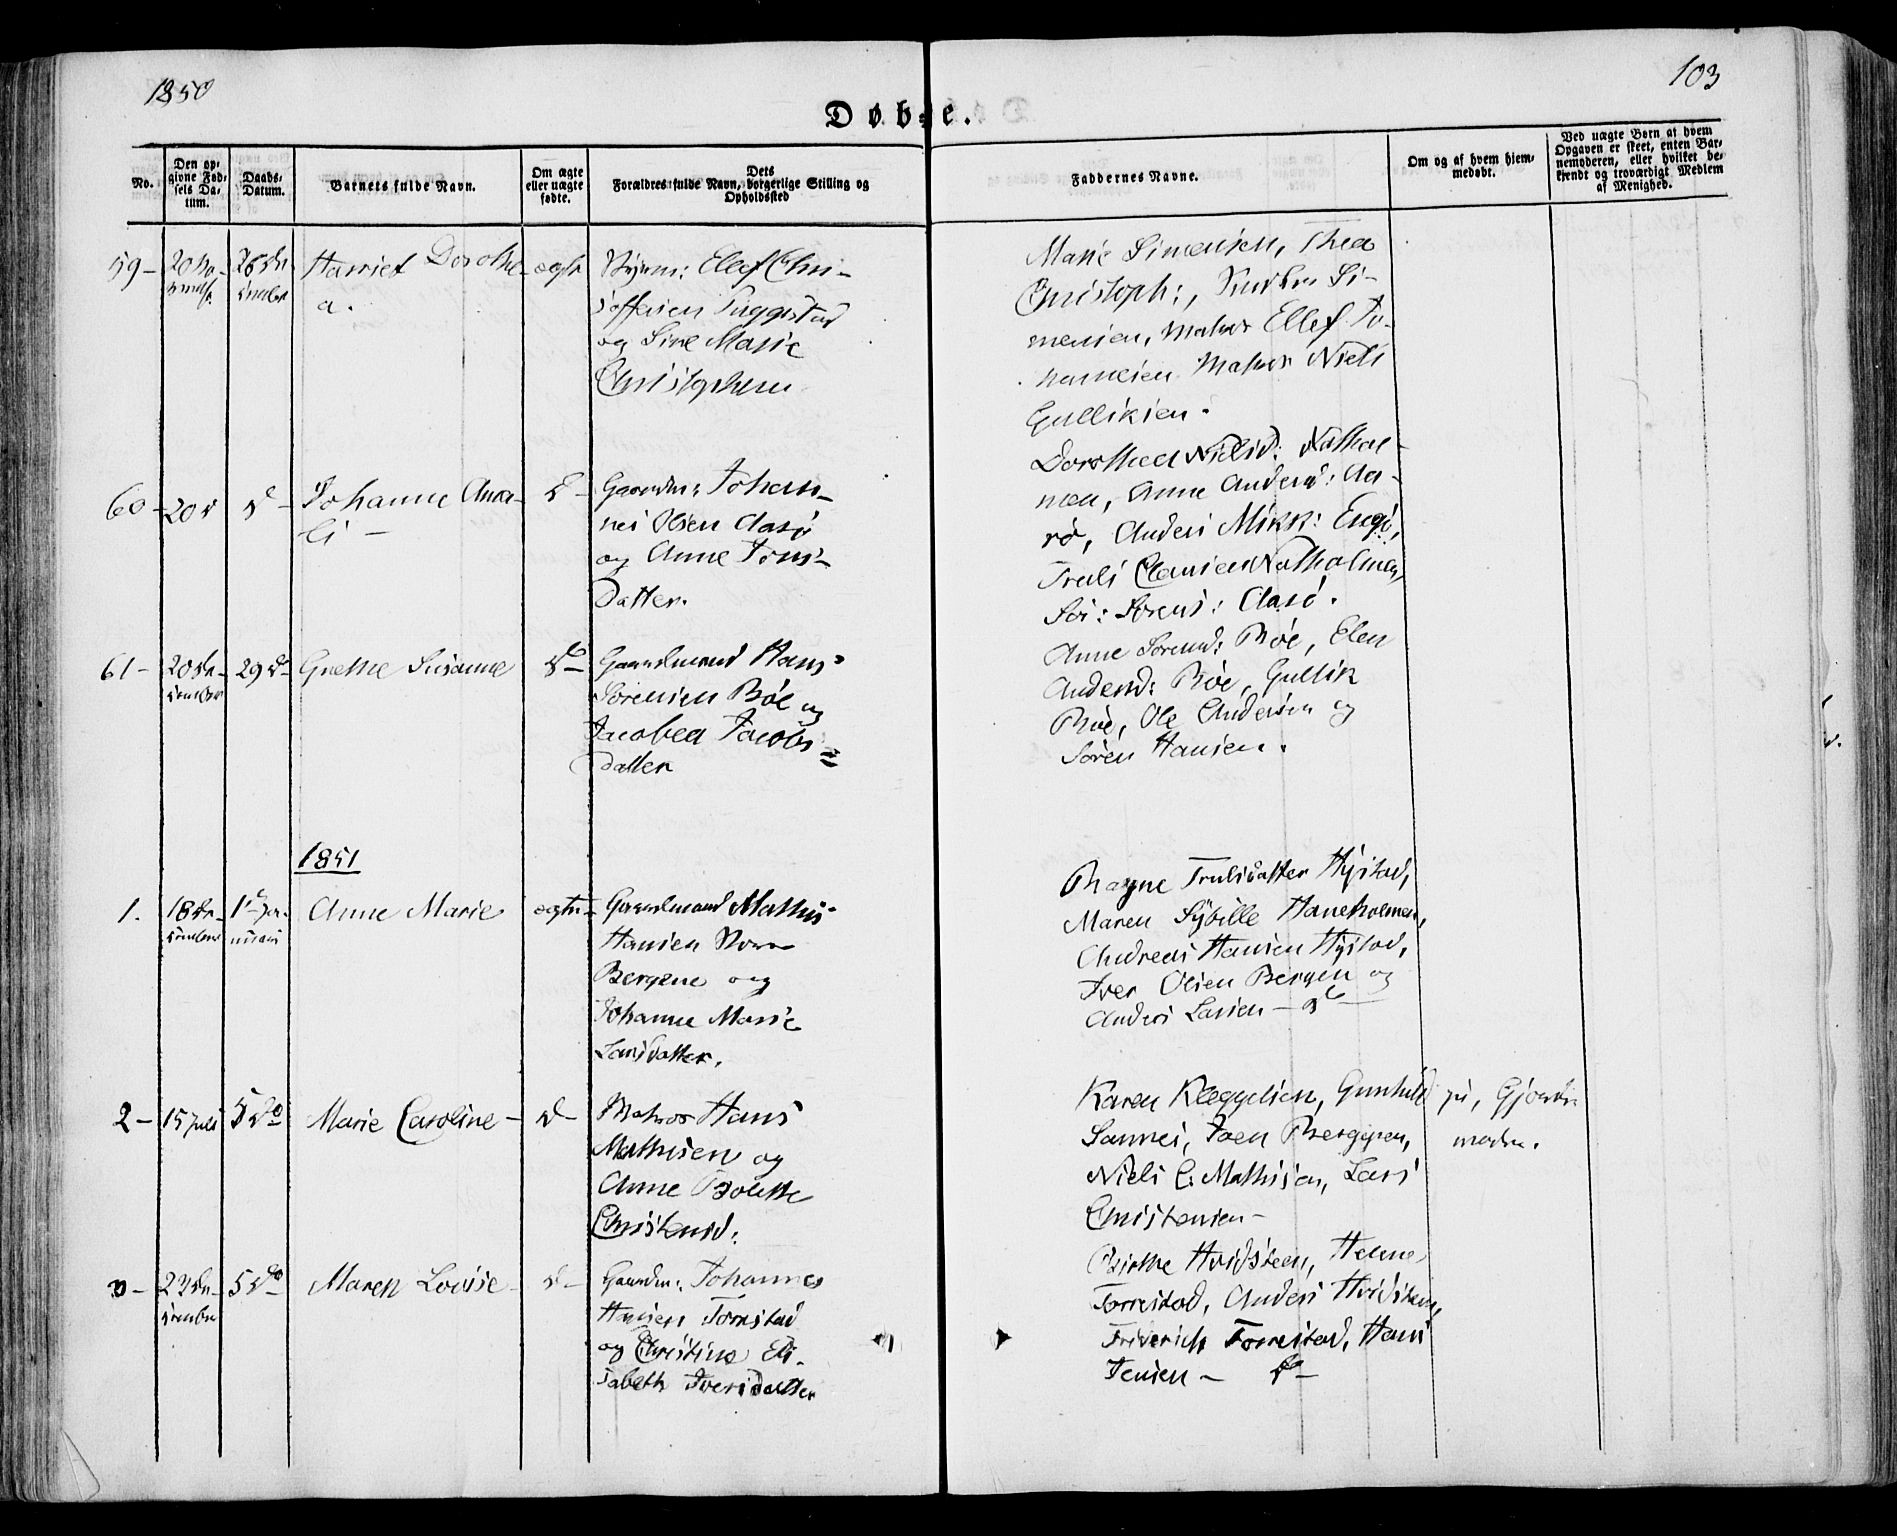 1850
103
Døbte.
No.
Den op-
givne Fød-
sels Da-
tum.
Daabs-
Datum.
Barnets fulde Navn.
Om ægte
eller uægte
fødte.
Dets
Forældres fulde Navn, borgerlige Stilling og
Opholdssted
Faddernes Navne.
Om og af hvem hjem-
medøbt.
Ved uægte Børn at hvem
Opgaven er skeet, enten Bar-
nemoderen, eller hvilket be-
kjendt og troværdigt Medlem
af Menighed.
59-
Harriet Dorothe-
a.
ægte
Ellef Chri-
stoffersen
og Sine Marie
Marie Simensen, Thea
Christoph:, Si-
mensen, Matros Ellef To-
Matros Niels
Gulliksen.
60-
20 d
d-
Johanne Ama-
li-
d-
Gaardm: Johan-
nes Olsen Aasø
og Anne Jens-
Datter.
Dorthea Nielsd: Nathol-
men, Anne Andersd: Aa-
rø, Anders Mikk: Engø,
Truls Clausen Natholmen,
Sør: Sørens: Aasø.
61-
20 De-
cember
29 do
Grethe Susanne
do-
Gaardmand Hans
Sørensen Bøe og
Jacobea Jacobs=
datter
Anne Sørensd: Bøe, Elen
Andersd: Bøe, Gullik
Bøe, Ole Andersen og
Søren Hansen.
1851
1.
18 De-
cember
1 Ja-
nuari
Anne Marie
ægte-
Gaardmand Mathis
Hansen Store
Bergene og
Johanne Marie
Larsdatter.
Ragne Trulsdatter Hystad,
Maren Sybille Haneholmen,
Andreas Hansen Hystad,
Iver Olsen Bergen og
Anders Larsen -
2-
15 juli
5 do
Marie Caroline-
d-
Matros Hans
Mathisen og
Anne Bolette
Christensd:
Karen Kleggelsen, Gunhild
Sannes, Joen Berggren,
Niels C: Mathisen, Lars
Christensen-
ja, Gjorde-
moder.
3-
23 De-
cember
5 do
Maren Lovise-
d-
Gaardm: Johannes
Hansen Torrestad
og Christine Eli-
sabeth Iversdatter
Birthe Hvidsteen, Helene
Torrestad, Anders Hvidsteen,
Friderich Torrestad, Hans
Jensen - do-